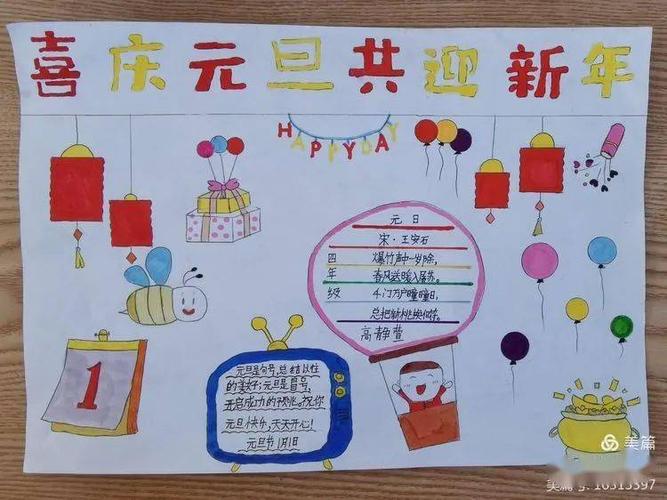 喜庆元旦共迎新年
HAPPYDAY
元日
宋·王安石
爆竹声中一岁除,
春风送暖入屠苏。
千门万户曈曈日,
总把新桃换旧符。
四年级
高静萱
1
元旦是句号,总结以往
的美好;元旦是冒号,
开启成功的
祝你
元旦快乐,天天开心!
元旦节1月1日
美篇
美篇号:16315397